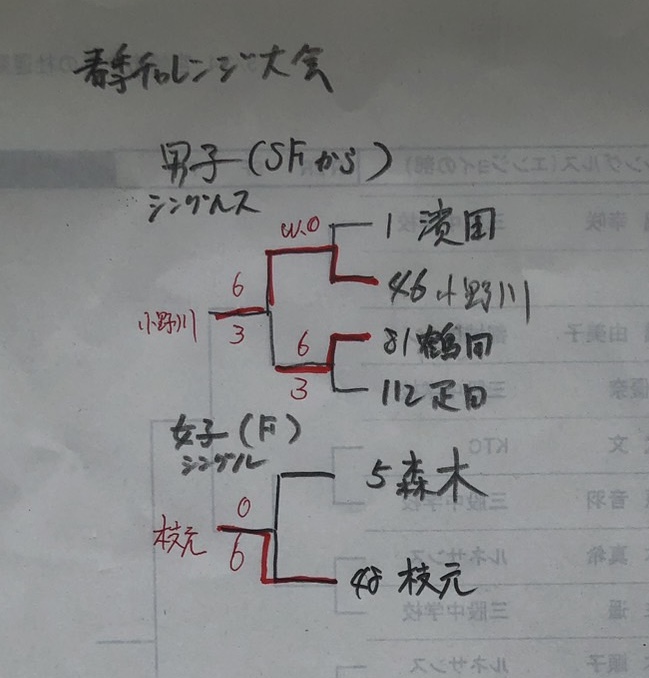 春季チャレンジ大会
男子(SFから)
シングルス
W.O
1 濱田
46 小野川
6
小野川
3
6
81 鶴田
3
112 疋田
女子(F)
シングル
5 森木
0
枝元
6
48 枝元